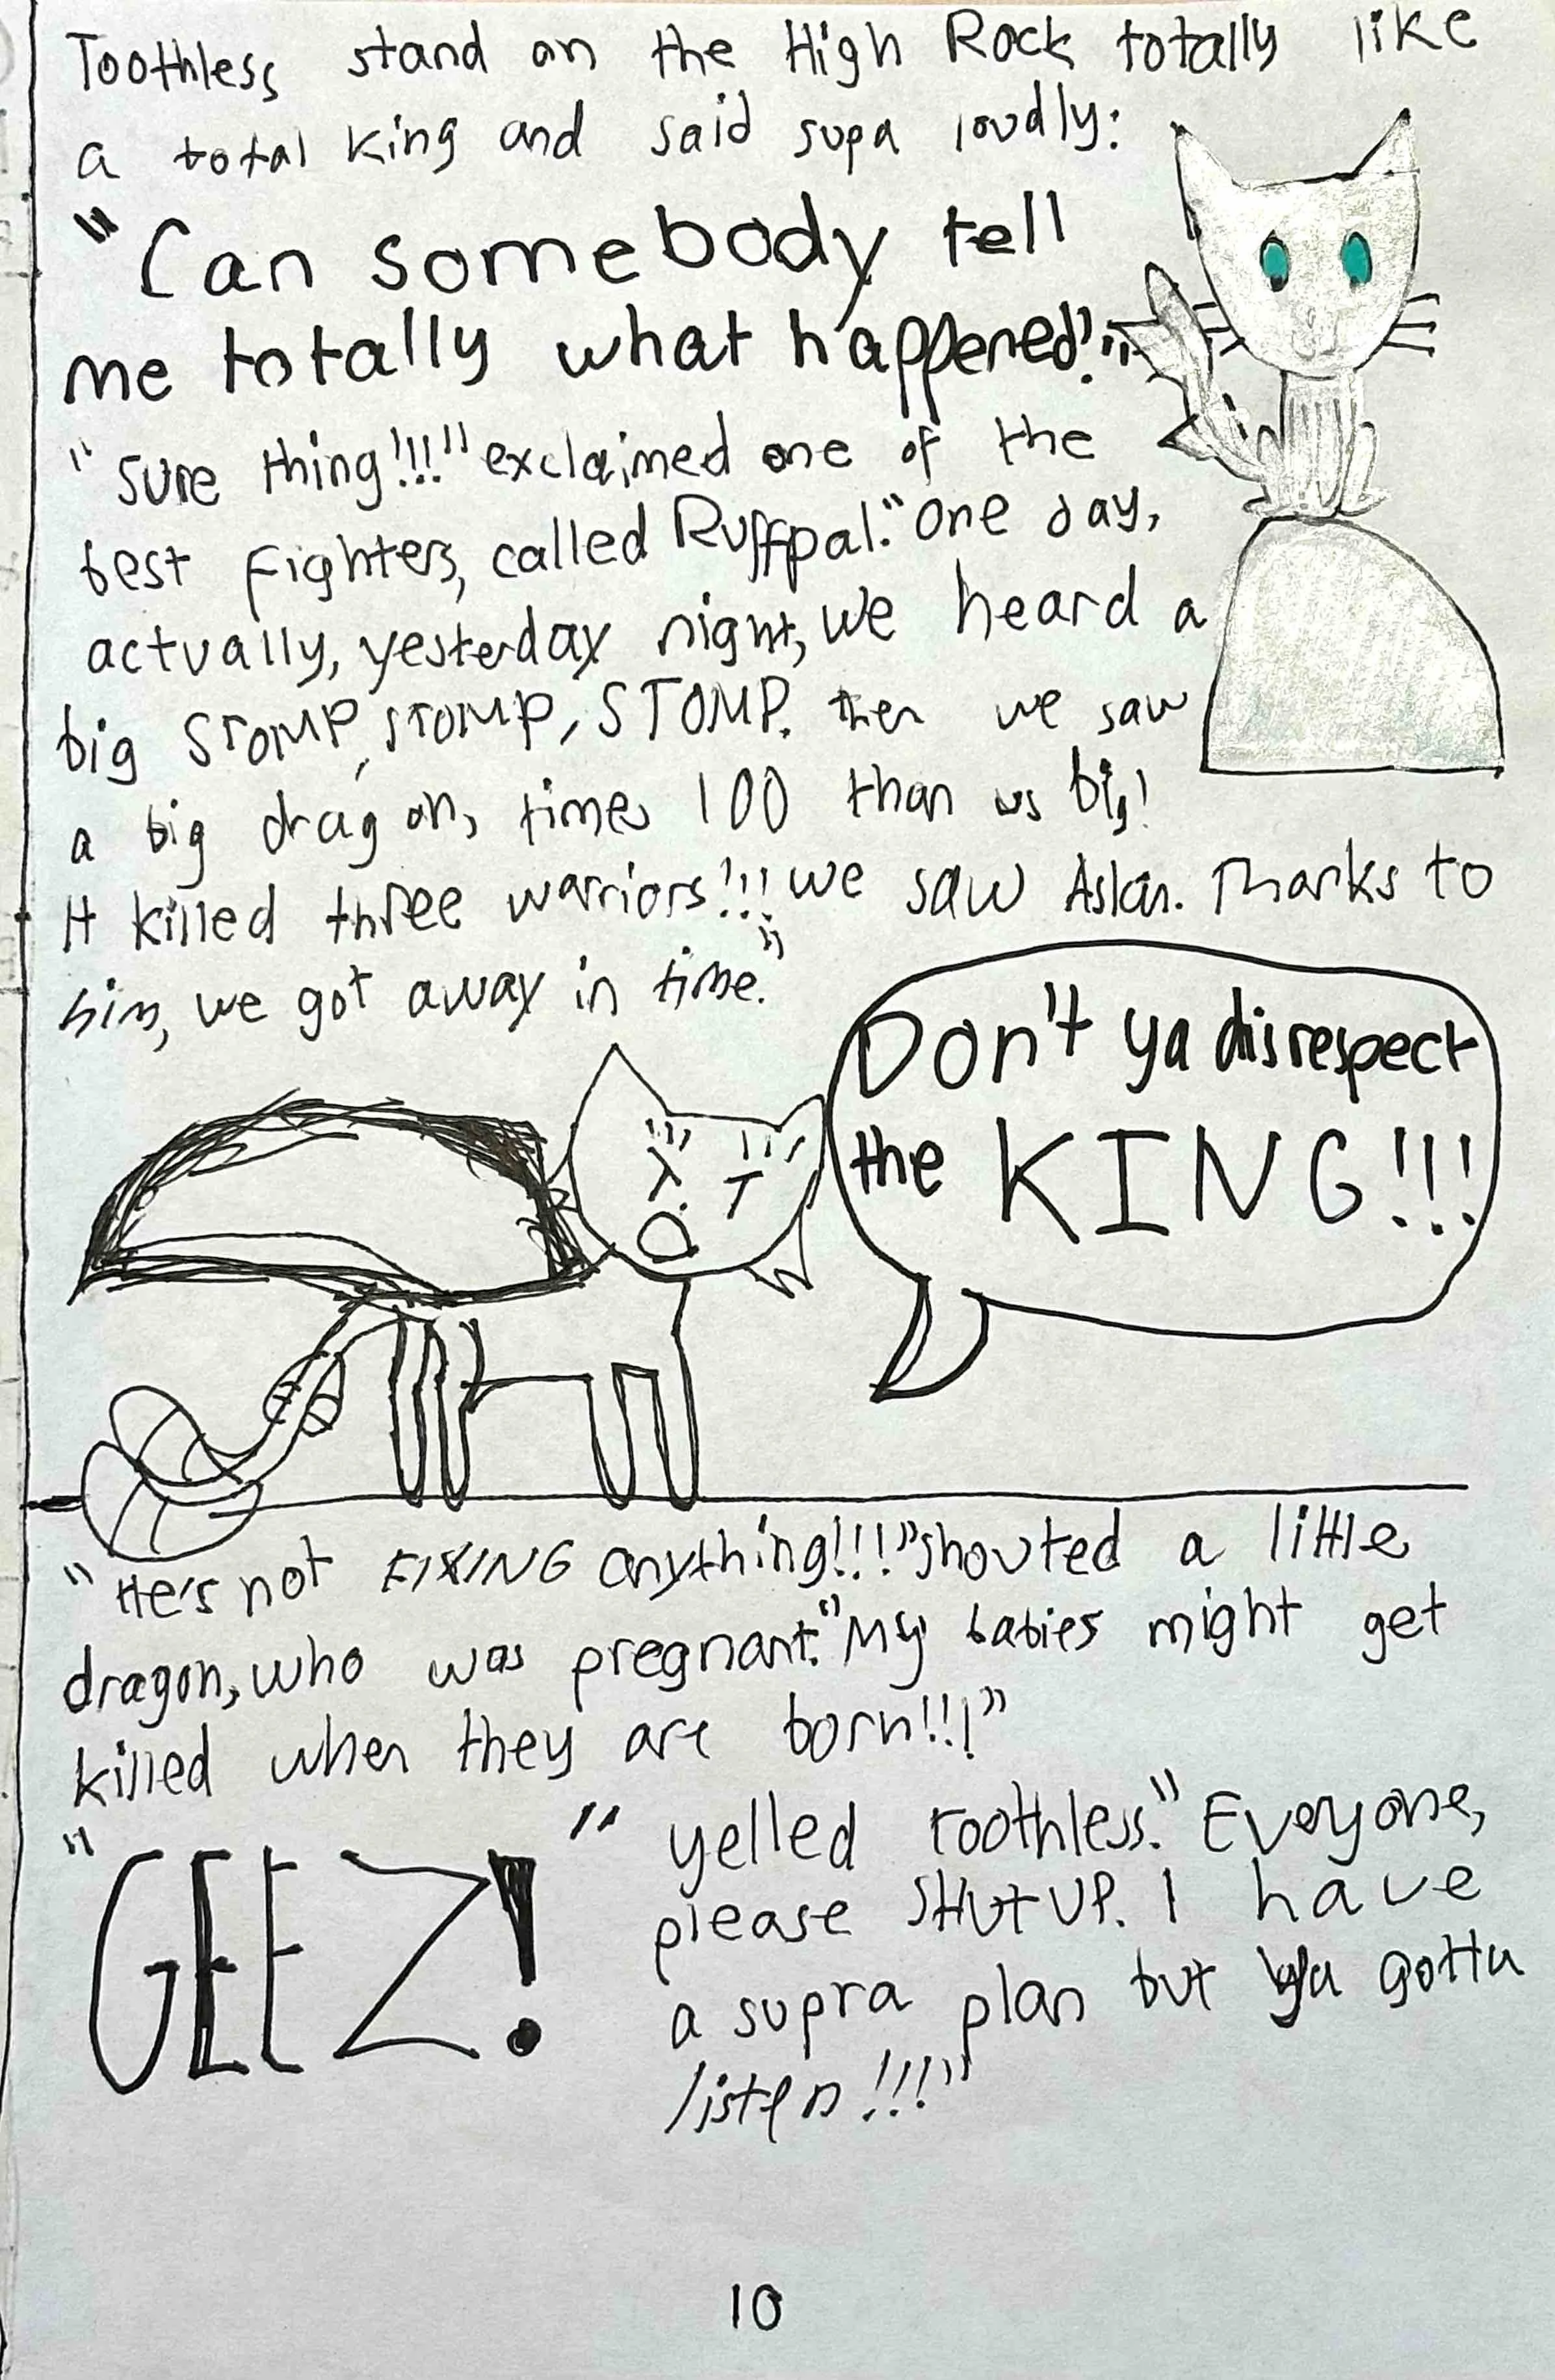 Toothless stand on the High Rock totally like
a total king and said supa loudly:
"Can somebody tell
me totally what happened!"
"Sure thing!!!" exclaimed one of the
best fighters, called Ruffpal. "One day,
actually, yesterday night, we heard a
big STOMP, STOMP, STOMP. then we saw
a big dragon, times 100 than us big!
It killed three warriors!!! we saw Aslan. Thanks to
him, we got away in time."
Don't ya disrespect
the KING!!!
"He's not FIXING anything!!!" shouted a little
dragon, who was pregnant. "My babies might get
killed when they are born!!!"
"GEEZ!" yelled Toothless. "Everyone,
please SHUT UP. I have
a supra plan but ya gotta
listen!!!"
10